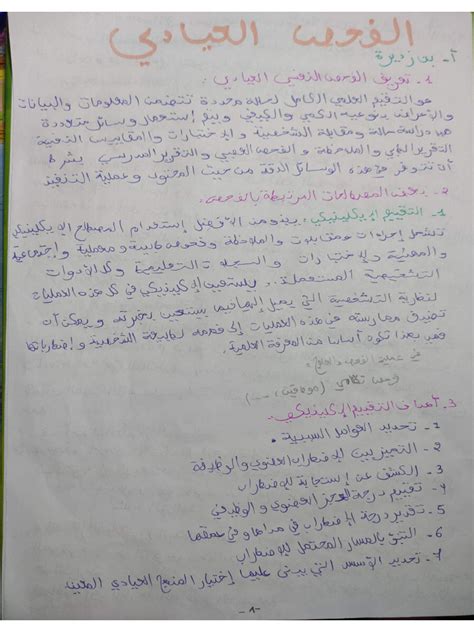 الفحص العيادي
أ- بوزديرة
1- تعريف الفحص النفسي العيادي:
هو التقييم العلمي الكامل لحالة محددة تتضمن المعلومات والبيانات
والأعراض بنوعيه الكمي والكيفي ويتم إستعمال وسائل متعددة
من دراسة حالة ومقابلة الشخصية والاختبارات والمقاييس النفسية
التقرير الطبي والملاحظة والفحص العصبي والتقرير المدرسي بشرط
أن تتوفر في هذه الوسائل الدقة من حيث المحتوى وعملية التنفيذ
2- بعض المصطلحات المرتبطة بالفحص:
1- التقييم الإكلينيكي: من الأفضل إستخدام المصطلح الإكلينيكي
تشمل إجراءات ومقابلات والملاحظة وفحوص طبية ومعملية وإجتماعية
والمهنية والإختبارات والسجلات التعليمية وكل الأدوات
التشخيصية المستعملة. ويستعين الإكلينيكي في كل هذه العمليات
لنظرية الشخصية التي يميل إليها فيما يستعين بخبرته ويمكن أن
تضيف ممارسته في هذه العمليات إلى فهمه لطبيعة الشخصية وإضطراباتها
فهي بهذا تكون أساسا من المعرفة العلمية.
في عملية الفحص والعلاج
فحص نظامي
3- أهداف التقييم الإكلينيكي:
1- تحديد العوامل السببية.
2- التمييز بين الإضطراب العضوي والوظيفة
3- الكشف عن إستجابة للإضطراب
4- تقييم درجة العجز العضوي والوظيفي
5- تقدير درجة الإضطراب في مداها وفي عمقها
6- التنبؤ بالمسار المحتمل للإضطراب
7- تحديد الأسس التي يبنى عليها إختيار المنهج العيادي المعين
-1-